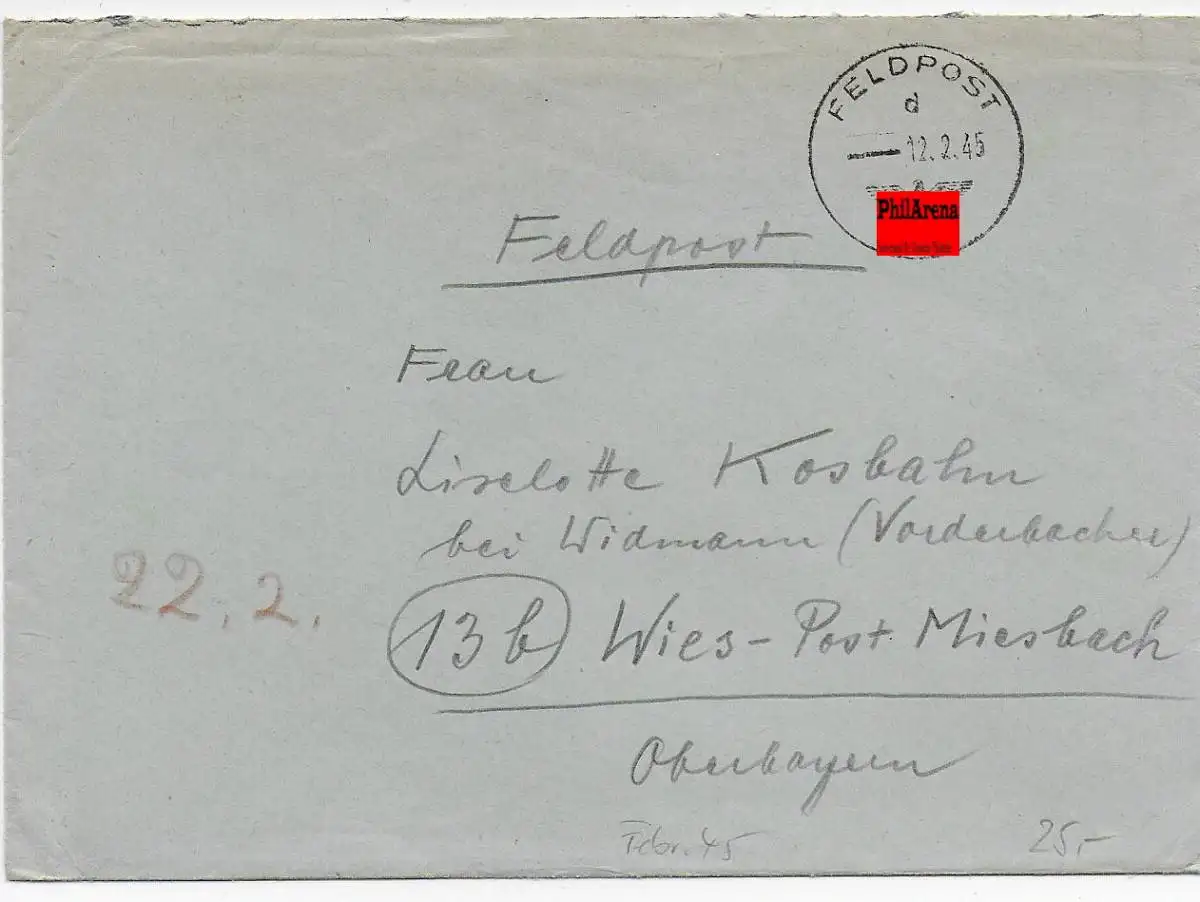 FELDPOST
d
12.2.45
PhilArena
Feldpost
Frau
Liselotte Kosbahn
bei Widmann (Vorderbacher)
22.2.
13b Wies - Post Miesbach
Oberbayern
Febr. 45 25,-